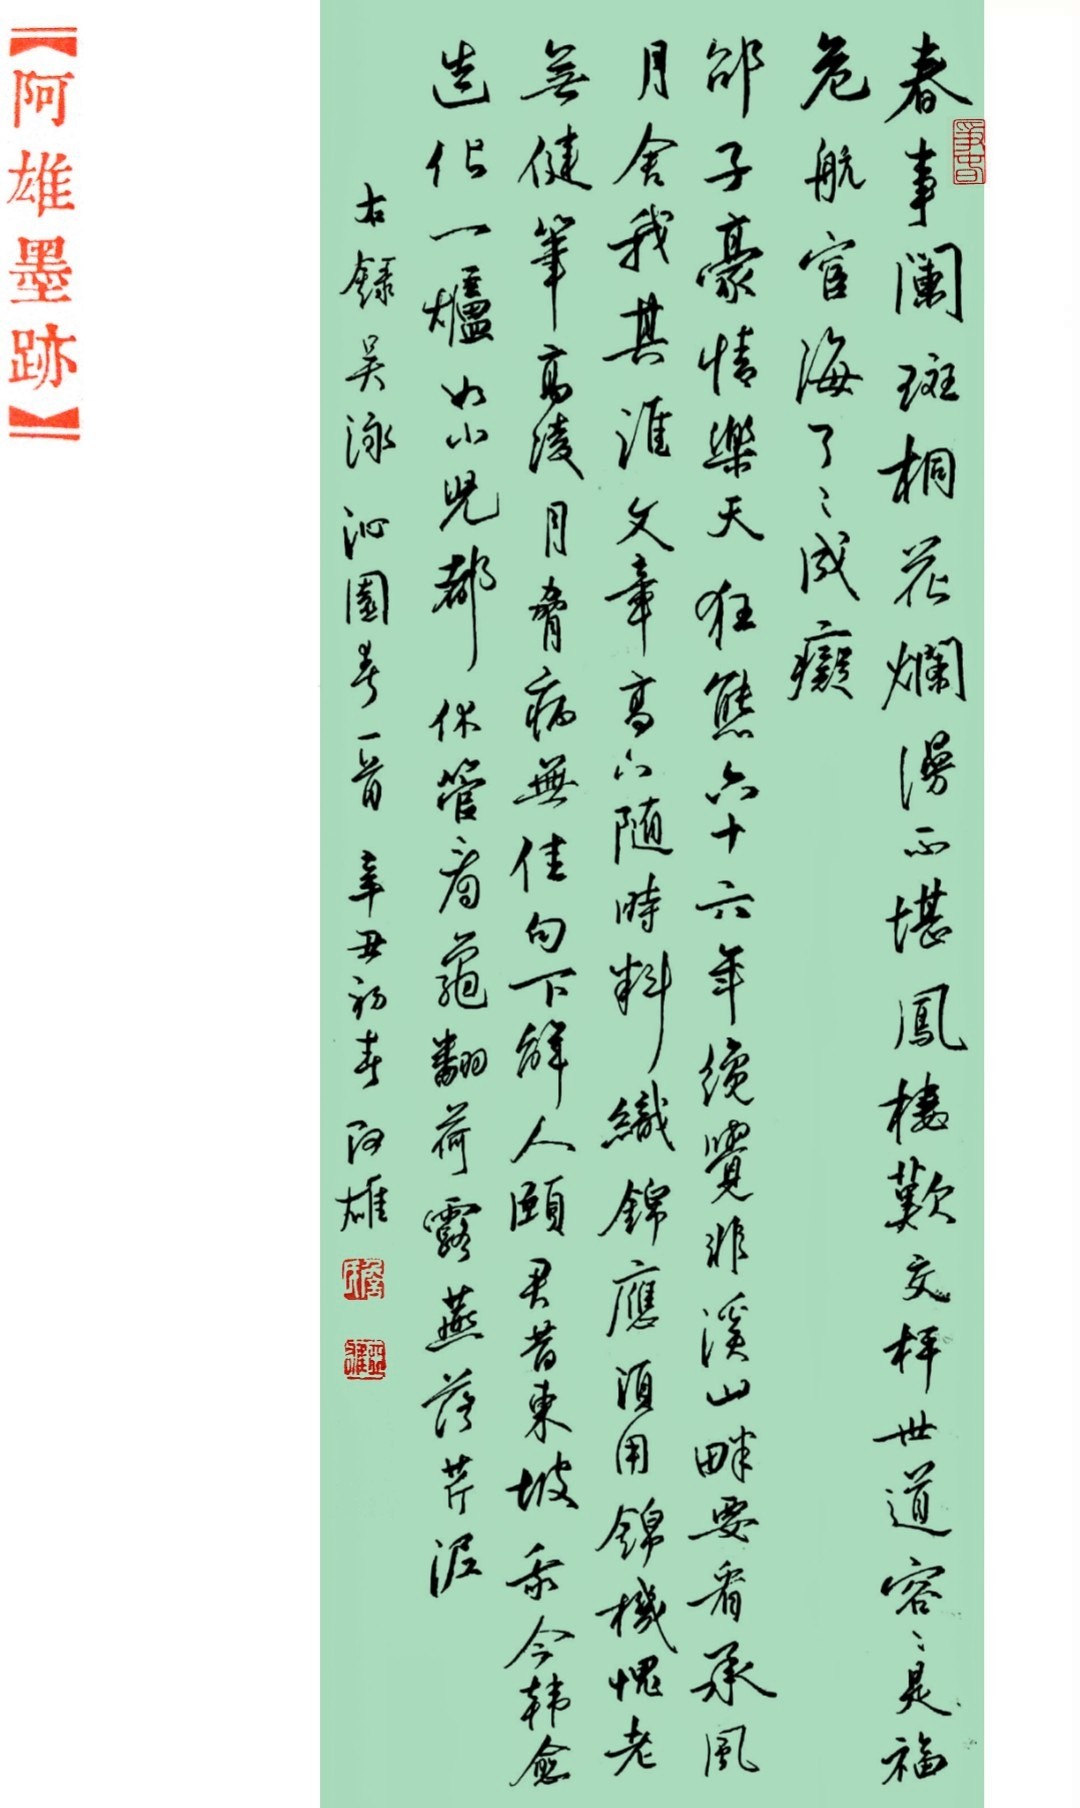 春事闌斑桐花爛漫正堪鳳棲歎交枰世道容〻是福
危航宦海了〻成癡
邵子豪情樂天狂態六十六年纔覺非溪山畔要看承風
月舍我其誰文章高下随時料織錦應須用錦機愧老
無健筆高凌月脅病無佳句下解人頤君昔東坡我今韓愈
造化一爐如小兒都休管看龜翻荷露燕落芹泥
右錄吴泳沁園春一首 辛丑初春 阿雄
【阿雄墨跡】